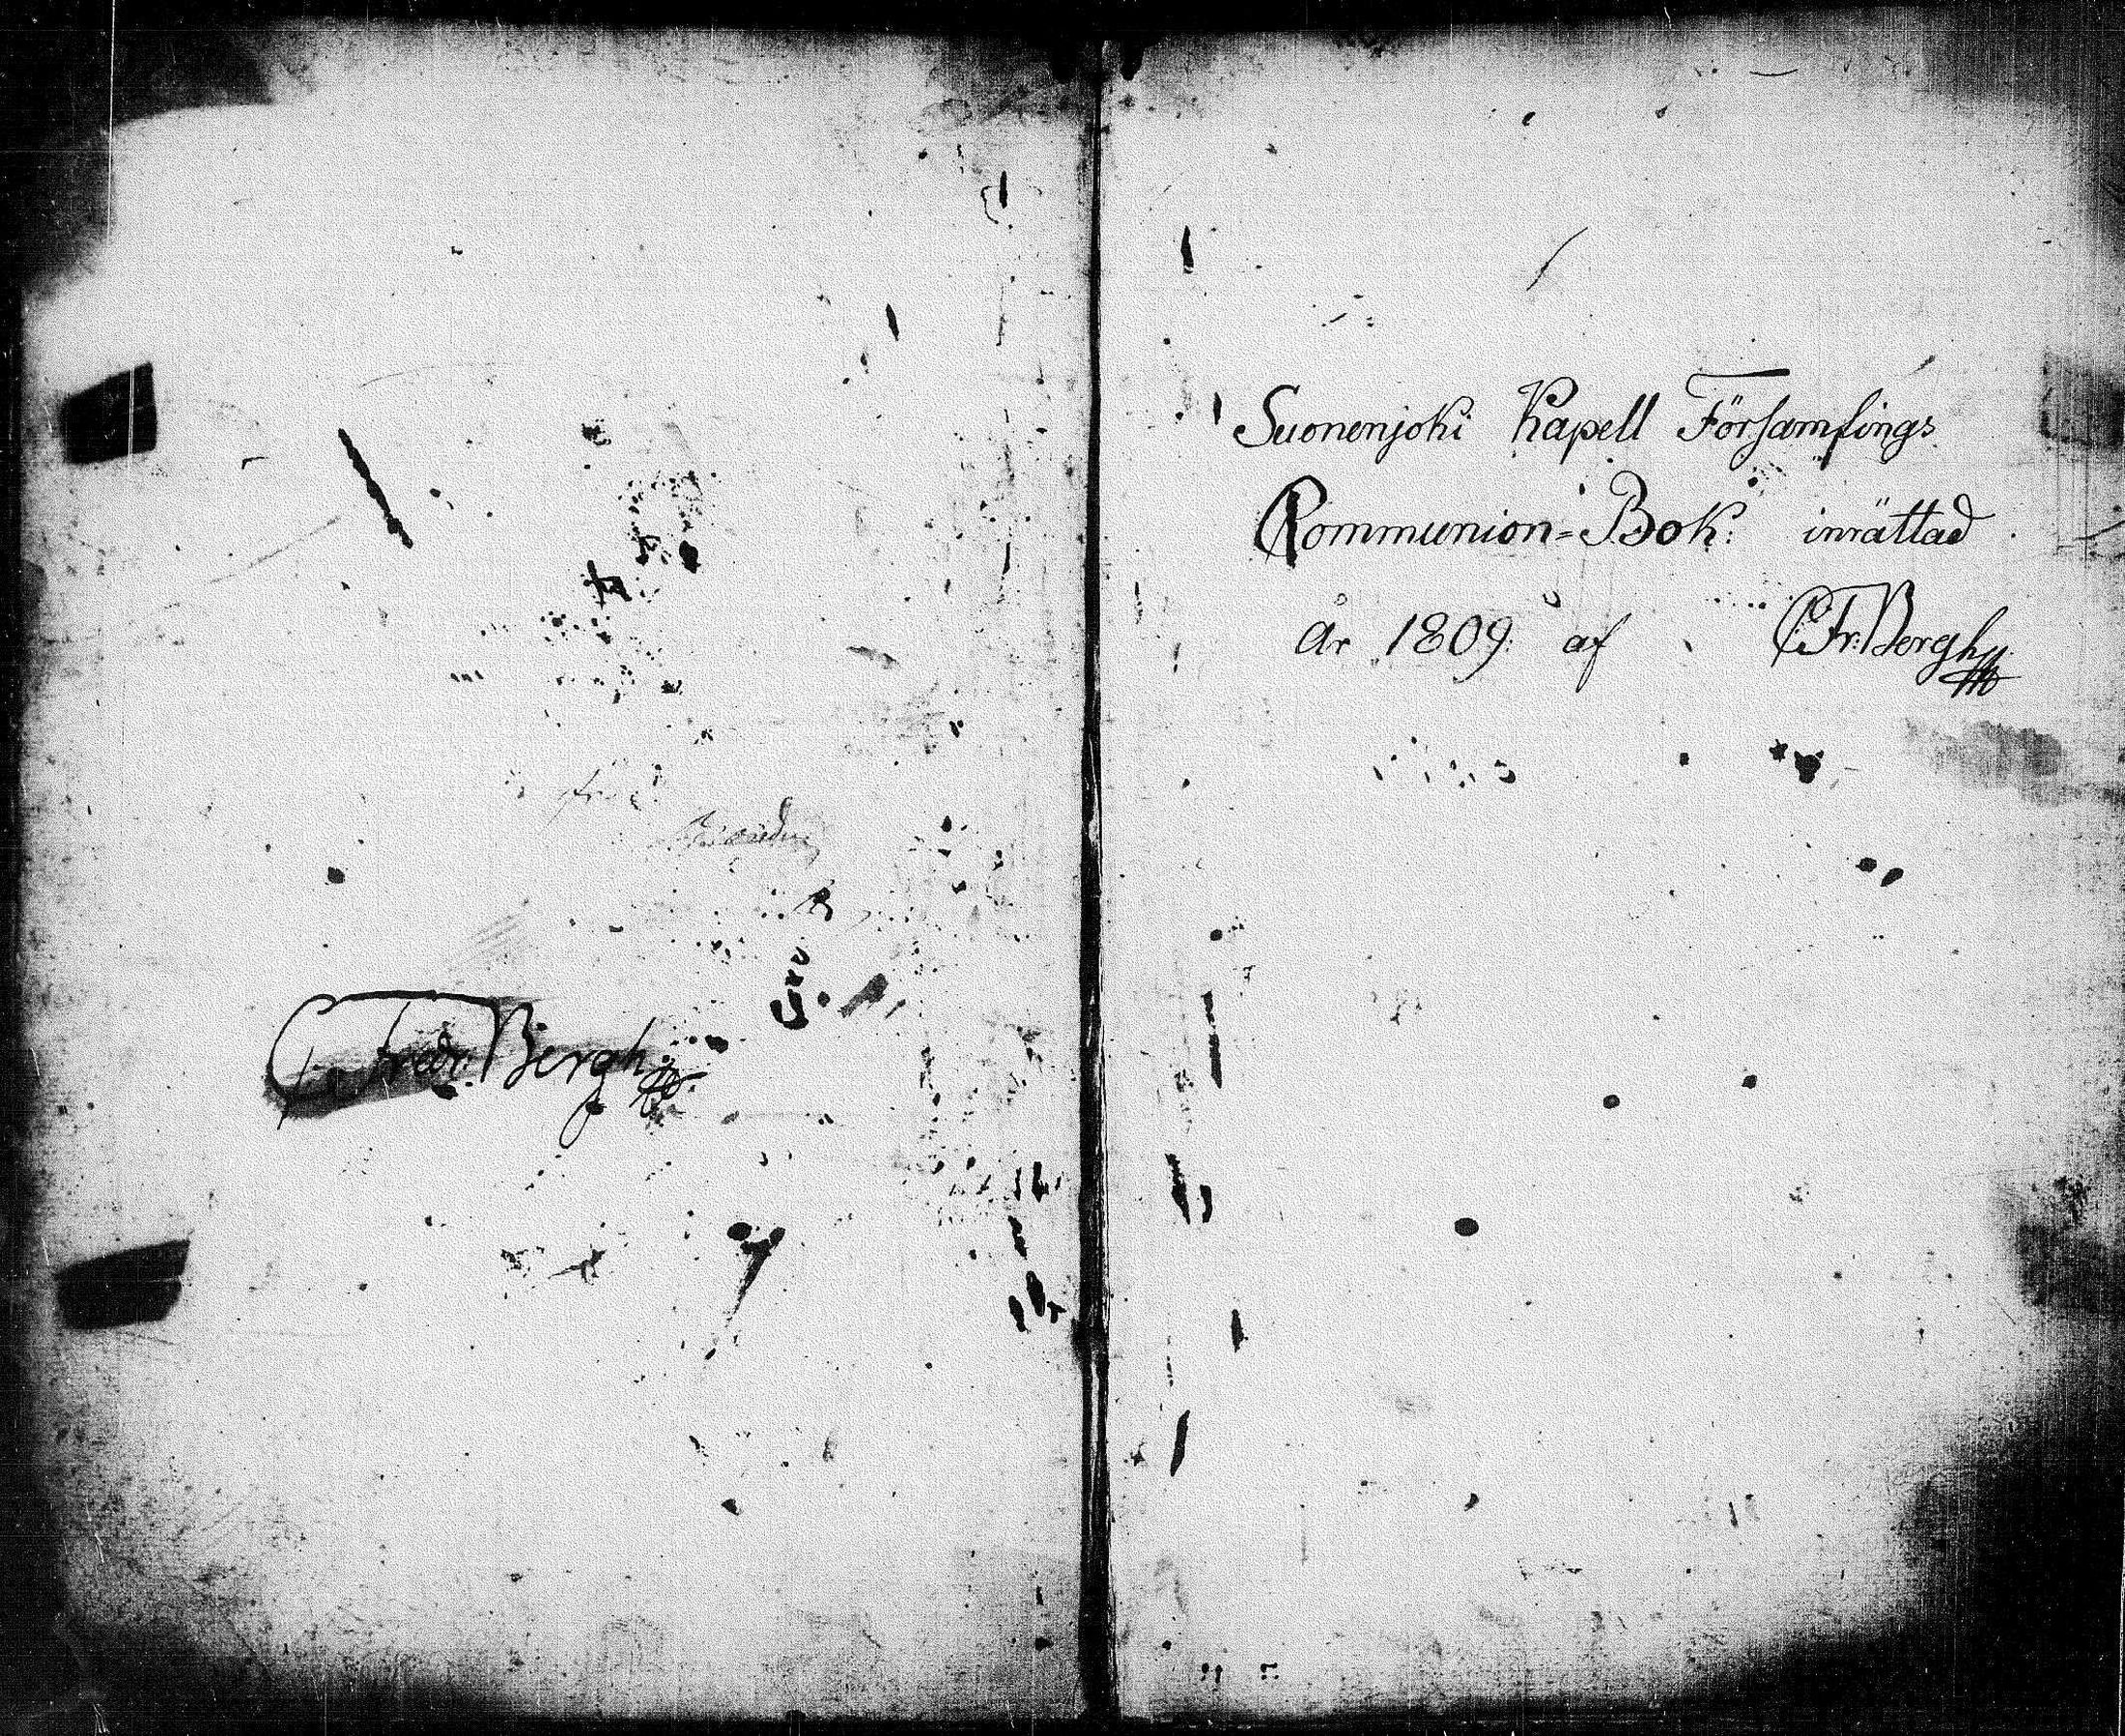 C. Fredr. Bergh
Suonenjoki Kapell Församlings
Kommunion=Bok: inrättad
år 1809: af CFr: Bergh